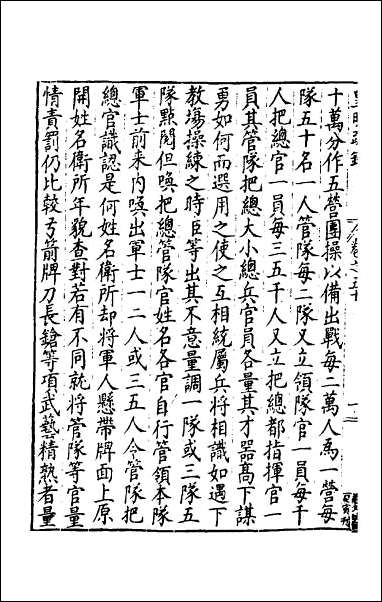 十萬分作五營團操以備出戰每二萬人為一營每
隊五十名一人管隊每二隊又立領隊官一員每千
人把總官一員每三五千人又立把總都指揮官一
員其管隊把總大小總兵官員各量其才器高下謀
勇如何而選用之使之互相統屬兵將相識如遇下
教場操練之時臣等出其不意量調一隊或三隊五
隊點閱但喚把總管隊官姓名各官自行管領本隊
軍士前來內喚出軍士一二人或三五人令管隊把
總官識認是何姓名衛所却將軍人懸帶牌面上原
開姓名衛所年貌查對若有不同就將管隊等官量
情責罰仍比較弓箭牌刀長鎗等項武藝精熟者量